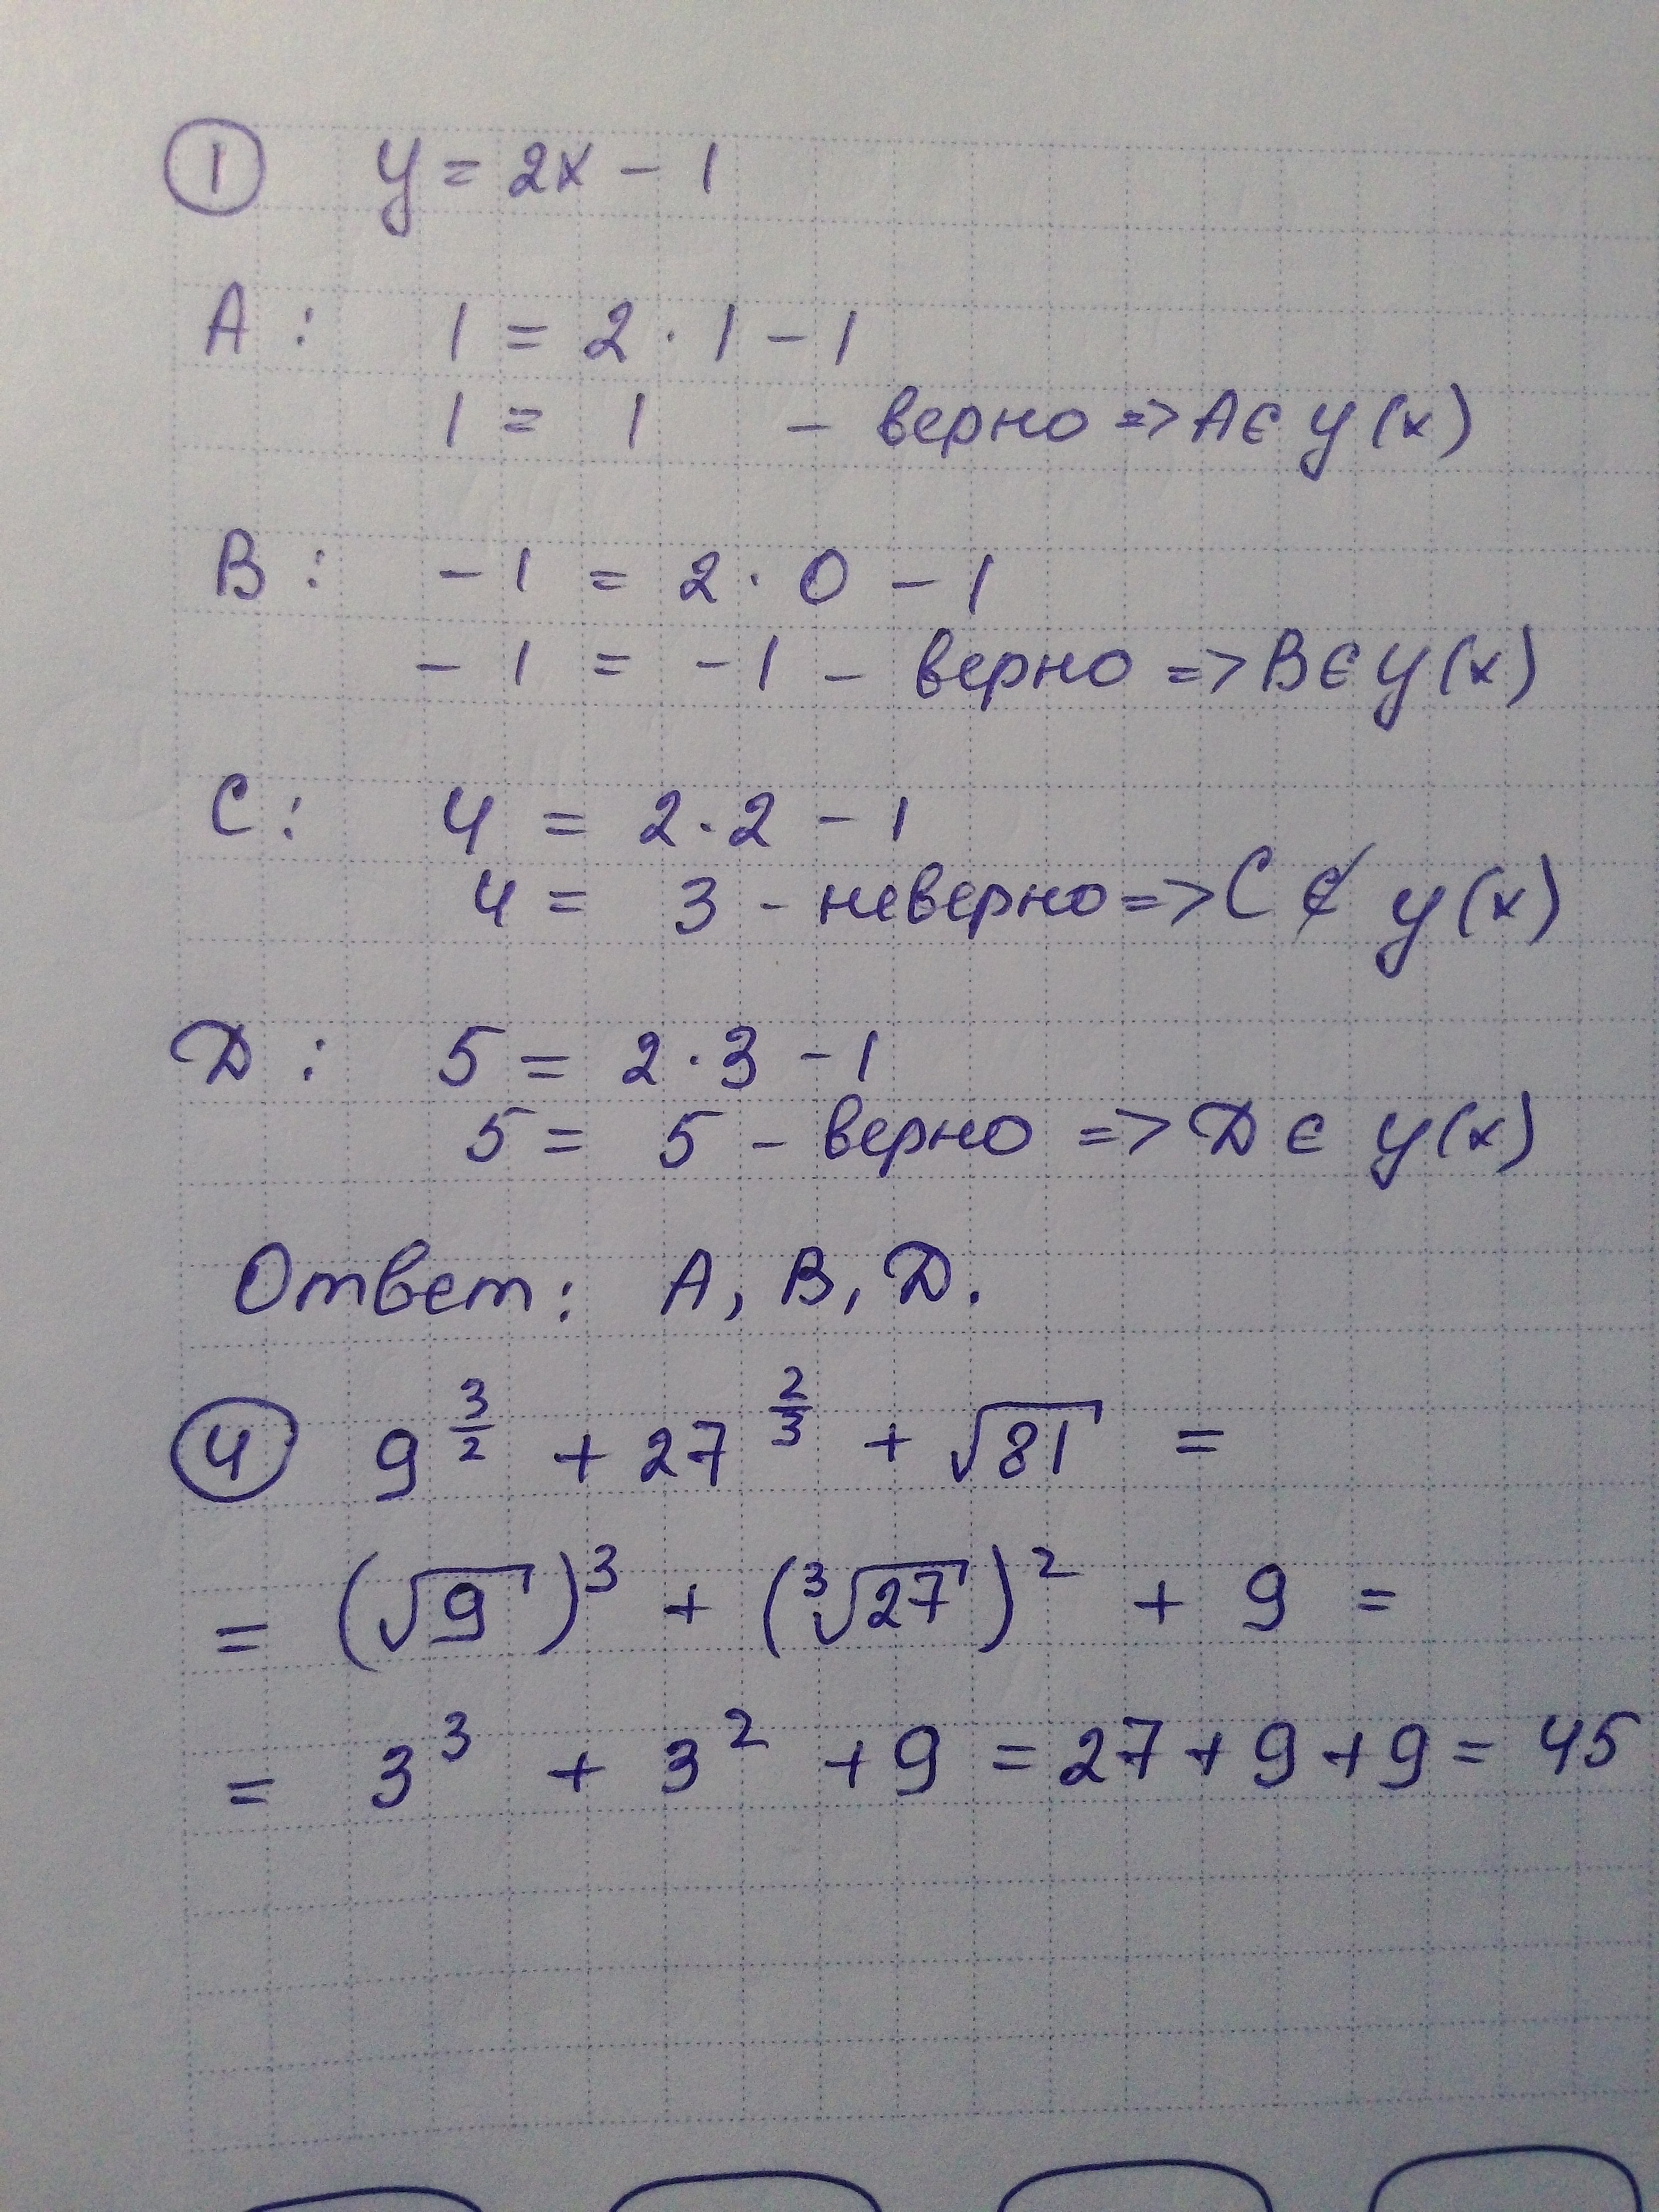 ① y = 2x - 1
A: 1 = 2 · 1 - 1
1 = 1 - верно => A ∈ y(x)
B: -1 = 2 · 0 - 1
-1 = -1 - верно => B ∈ y(x)
C: 4 = 2 · 2 - 1
4 = 3 - неверно => C ∉ y(x)
D: 5 = 2 · 3 - 1
5 = 5 - верно => D ∈ y(x)
Ответ: A, B, D.
④ 9^(3/2) + 27^(2/3) + √81 =
= (√9)³ + (³√27)² + 9 =
= 3³ + 3² + 9 = 27 + 9 + 9 = 45